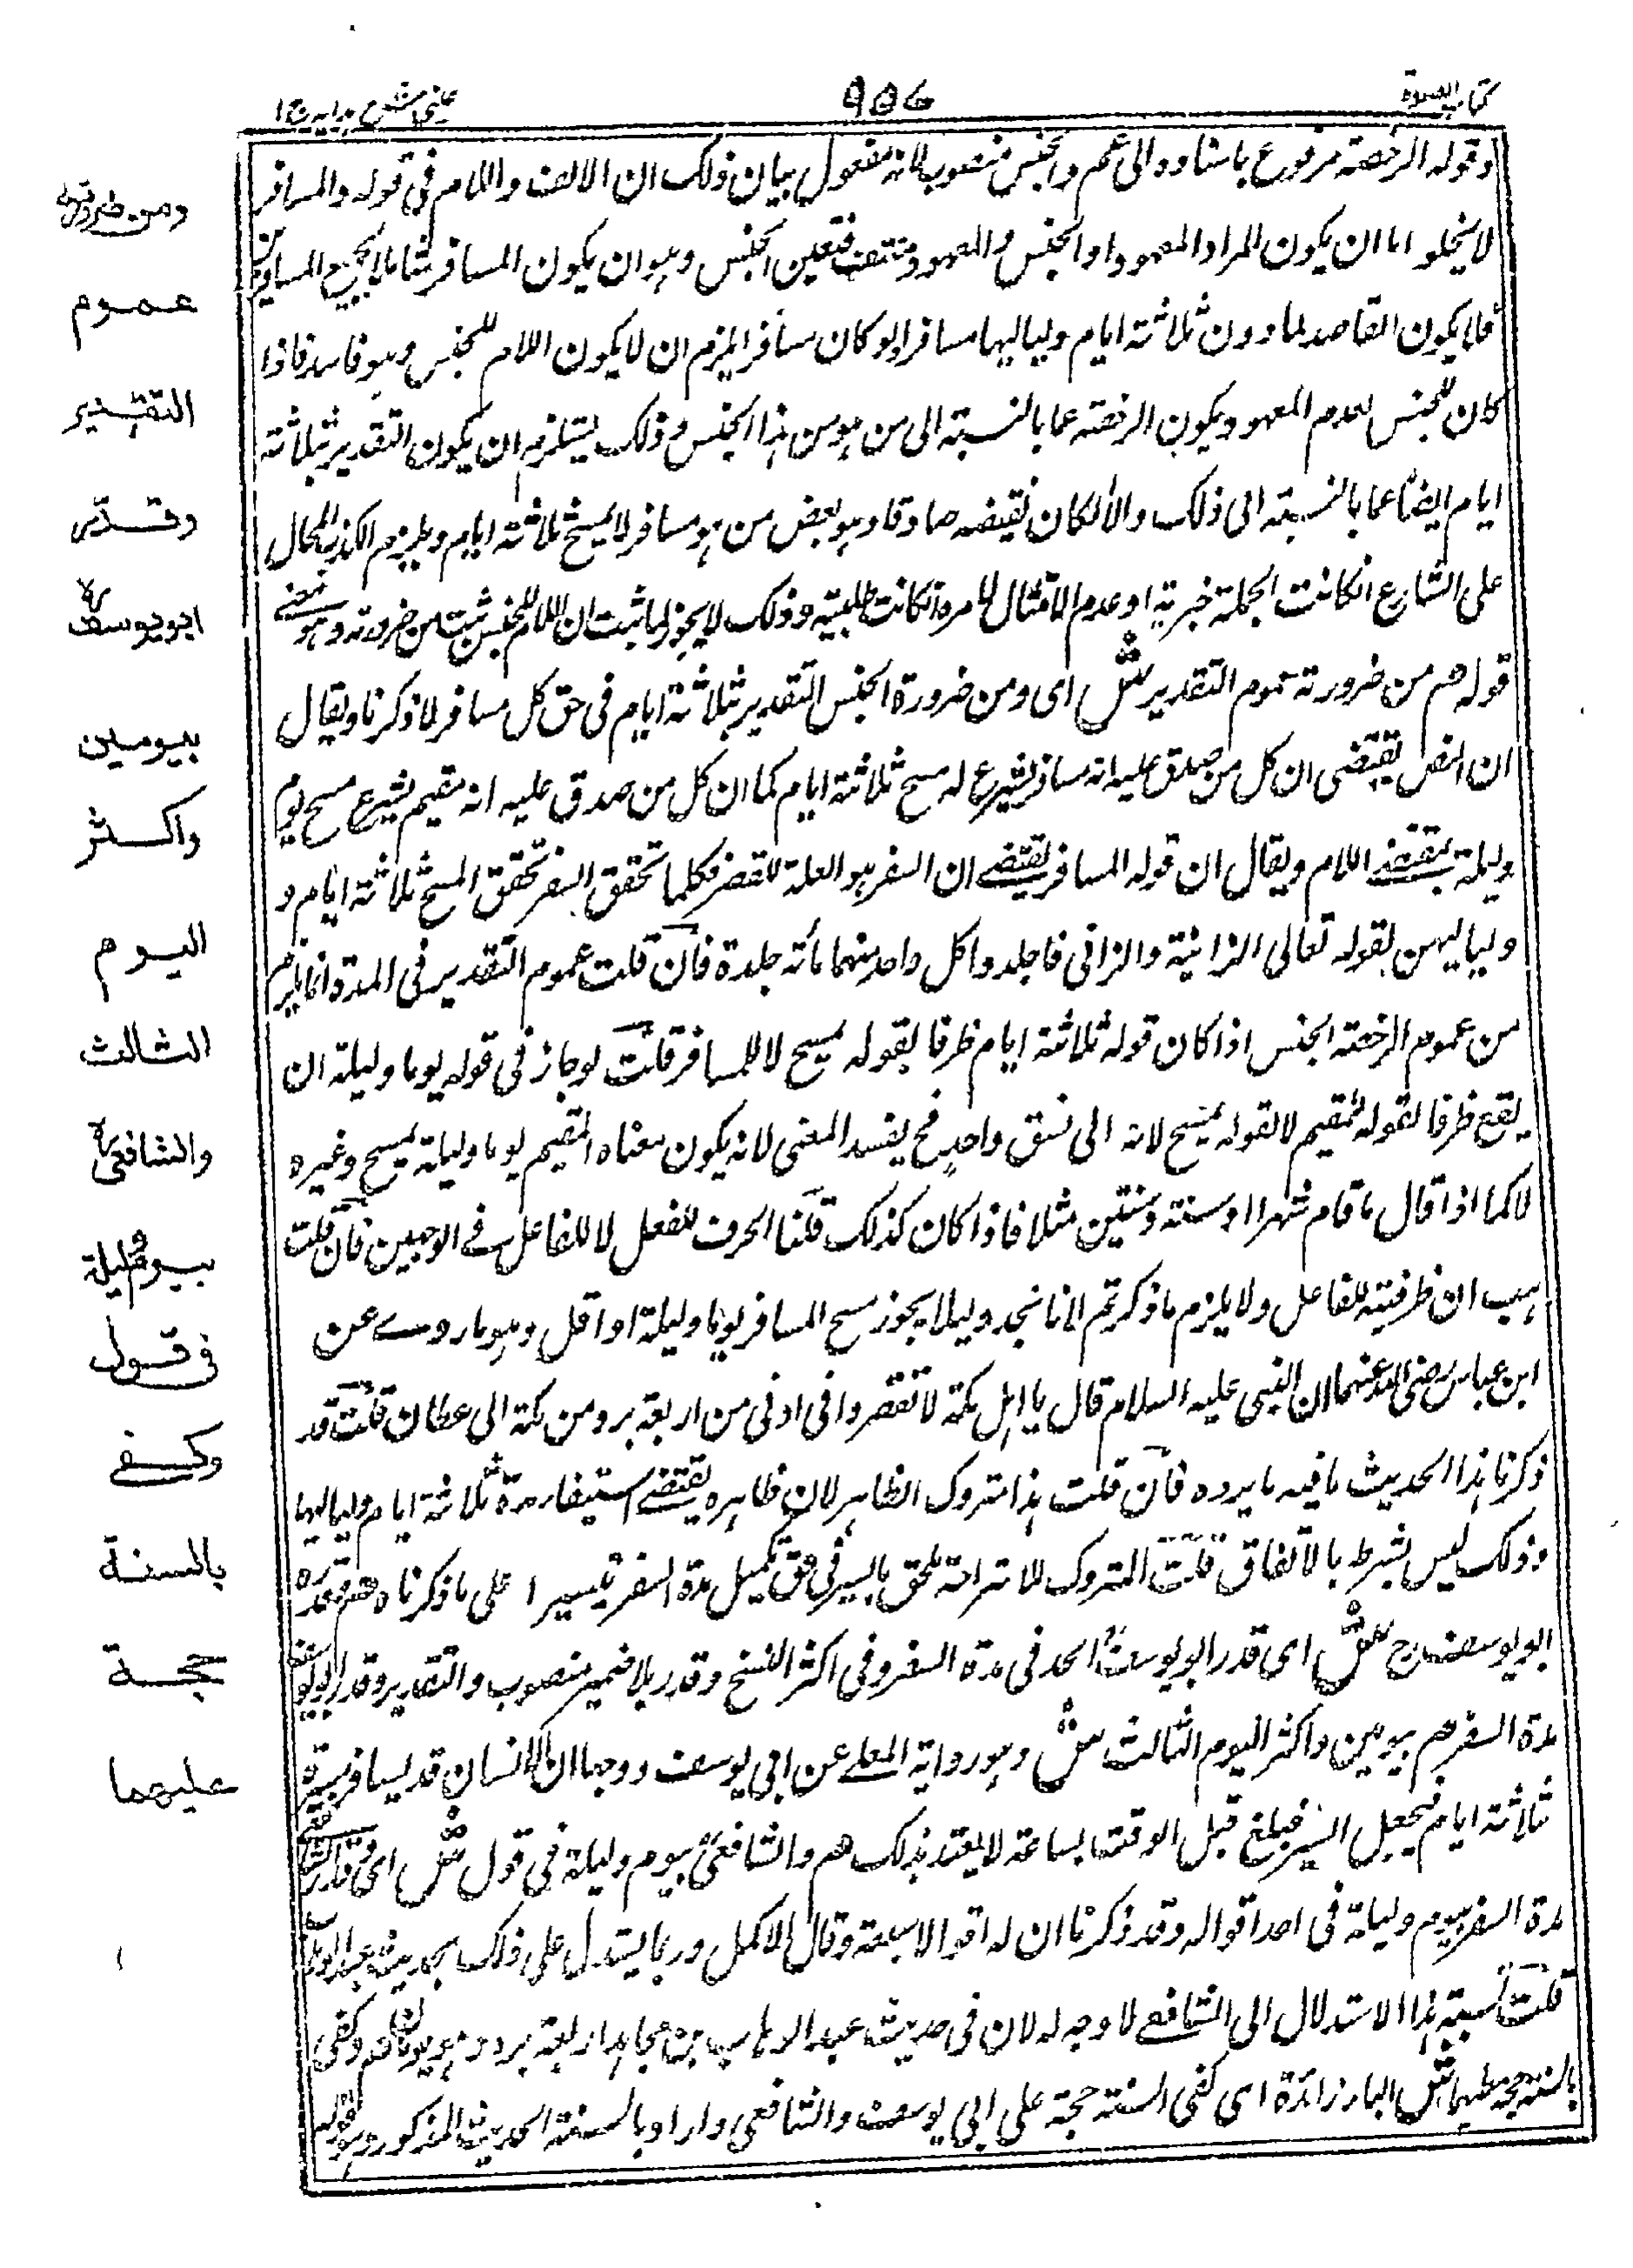 كتاب الصلوة
٩٥٦
عيني شرح هدايه ج ١
وقوله الرخصة مرفوع باسناده الى عم والجنس منصوب لانه مفعول بيان ذلك ان الالف واللام في قوله والمسافر
لا يخلو اما ان يكون المراد المعهود او الجنس والمعهود منتف فتعين الجنس وهو ان يكون المسافر شاملا لجميع المسافرين
فلا يكون القاصد لما دون ثلاثة ايام ولياليها مسافرا ولو كان مسافرا يلزم ان لا يكون اللام للجنس وهو فاسد فاذا
كان للجنس لعدم المعهود ويكون الرخصة عما بالنسبة الى من هو من هذا الجنس وذلك يستلزم ان يكون التقدير بثلاثة
ايام ايضا عما بالنسبة الى ذلك والا لكان نقيضه صادقا وهو بعض من هو مسافر لا يمسح ثلاثة ايام ويلزم الكذب المحال
على الشارع انكانت الجملة خبرية او عدم الامتثال لامره انكانت طلبية وذلك لا يجوز لما ثبت ان اللام للجنس ثبت من ضرورته وهو معنى
قوله هم من ضرورته عموم التقدير ش اى ومن ضرورة الجنس التقدير بثلاثة ايام في حق كل مسافر لما ذكرنا ويقال
ان النص يقتضى ان كل من صدق عليه انه مسافر يشرع له مسح ثلاثة ايام كما ان كل من صدق عليه انه مقيم يشرع مسح يوم
وليلة بمقتضى اللام ويقال ان قوله المسافر يقتضى ان السفر هو العلة للقصر فكلما تحقق السفر تحقق المسح ثلاثة ايام و
ولياليهن لقوله تعالى الزانية والزاني فاجلدوا كل واحد منهما مائة جلدة فان قلت عموم التقدير في المدة انما يلزم
من عموم الرخصة الجنس اذا كان قوله ثلاثة ايام ظرفا لقوله يمسح لا للمسافر قلت لو جاز في قوله يوما وليلة ان
يقع ظرفا لقوله المقيم لا لقوله يمسح لانه الى نسق واحد فح يفسد المعنى لانه يكون معناه المقيم يوما وليلة يمسح وغيره
لا كما اذا قال ما قام شهرا او سنة وسنتين مثلا فاذا كان كذلك قلنا الحرف للفعل لا للفاعل فى الوجهين فان قلت
هب ان ظرفيته للفاعل ولا يلزم ما ذكرتم الا نا نجد دليلا يجوز مسح المسافر يوما وليلة او اقل وهو ما روى عن
ابن عباس رضى الله عنهما ان النبى عليه السلام قال يا اهل مكة لا تقصروا في ادنى من اربعة برد من مكة الى عطان قلت قد
ذكرنا هذا الحديث ما فيه ما يرده فان قلت هذا متروك الظاهر لان ظاهره يقتضى استيفار مدة ثلاثة ايام ولياليها
وذلك ليس بشرط بالاتفاق قلت المتروك للاستراحة ملحق بالسير في حق تكميل مدة السفر تيسيرا على ما ذكرناه هم وقدره
ابو يوسف رح ش اى قدر ابو يوسف الحد في مدة السفر وفى اكثر النسخ وقدر بلا ضمير منصوب والتقدير وقدر ابو يوسف
مدة السفر هم بيومين واكثر اليوم الثالث ش وهو رواية المعلى عن ابي يوسف ووجها ان الانسان قد يسافر مسيرة
ثلاثة ايام فيجعل السير فبلغ قبل الوقت بساعة لا يعتد بذلك هم والشافعى بيوم وليلة في قول ش اى وقدر الشافعى
مدة السفر بيوم وليلة في احد اقواله وقد ذكرنا ان له اقوالا سبعة وقال الاكمل وربما يستدل على ذلك بحديث عبد الوهاب
قلت نسبة هذا الاستدلال الى الشافعى لا وجه له لان في حديث عبد الوهاب بن مجاهد اربعة برد وهو يومان هم وكفى
بالسنة حجة عليهما ش البار زائدة اى كفى السنة حجة على ابي يوسف والشافعى واراد بالسنة الحديث المذكور وهو قوله
ومن ضرورته
عموم
التقدير
وقدر
ابو يوسف رح
بيومين
واكثر
اليوم
الثالث
والشافعى رح
بيوم وليلة
فى قول
وكفى
بالسنة
حجة
عليهما